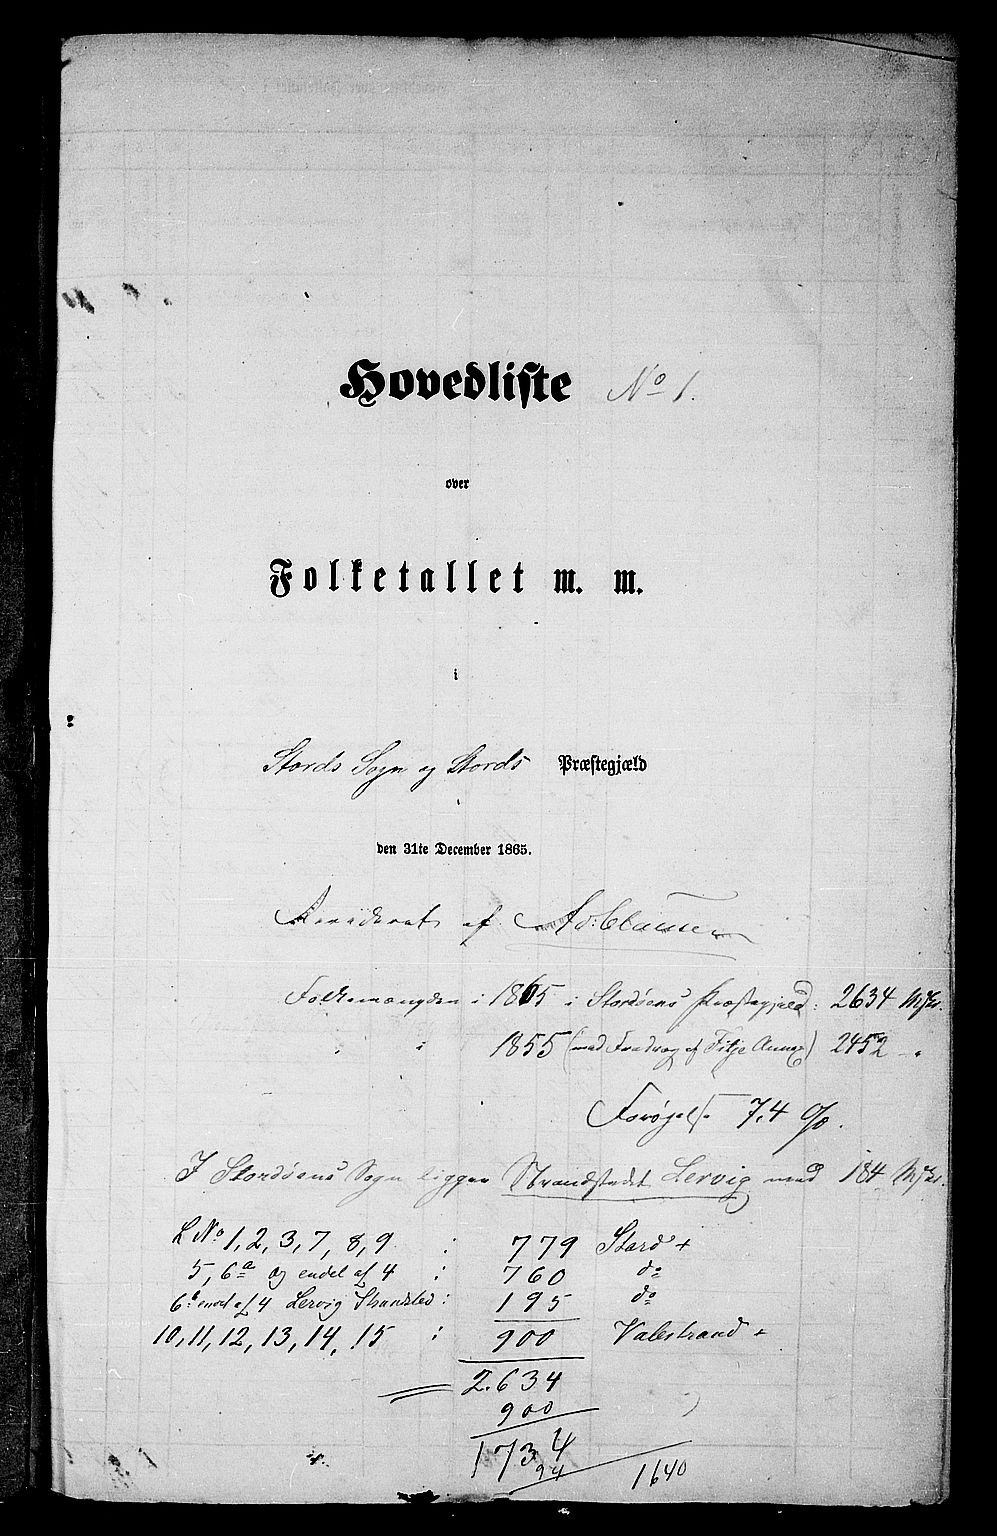 Hovedliste No 1.
over
Folketallet m. m.
i
Stords Sogn og Stords Præstegjæld
den 31te December 1865.
Revideret af Ad. Clausen
Folkemængden i 1865 i Stordøens Præstegjeld: 2634 Msker.
" i 1855 (med Fradrag af Fitje Annex) 2452 — "
Forøgelse 7,4 %.
I Stordøens Sogn ligger Strandstedet Lervig med 184 Msker.
L No 1, 2, 3, 7, 8, 9 : 779 Stord +
5, 6a og endel af 4 : 760 do
6b endel af 4 Lervig Strandsted : 195 do
10, 11, 12, 13, 14, 15 : 900 Valestrand +
2.634
900
1734
94 1640